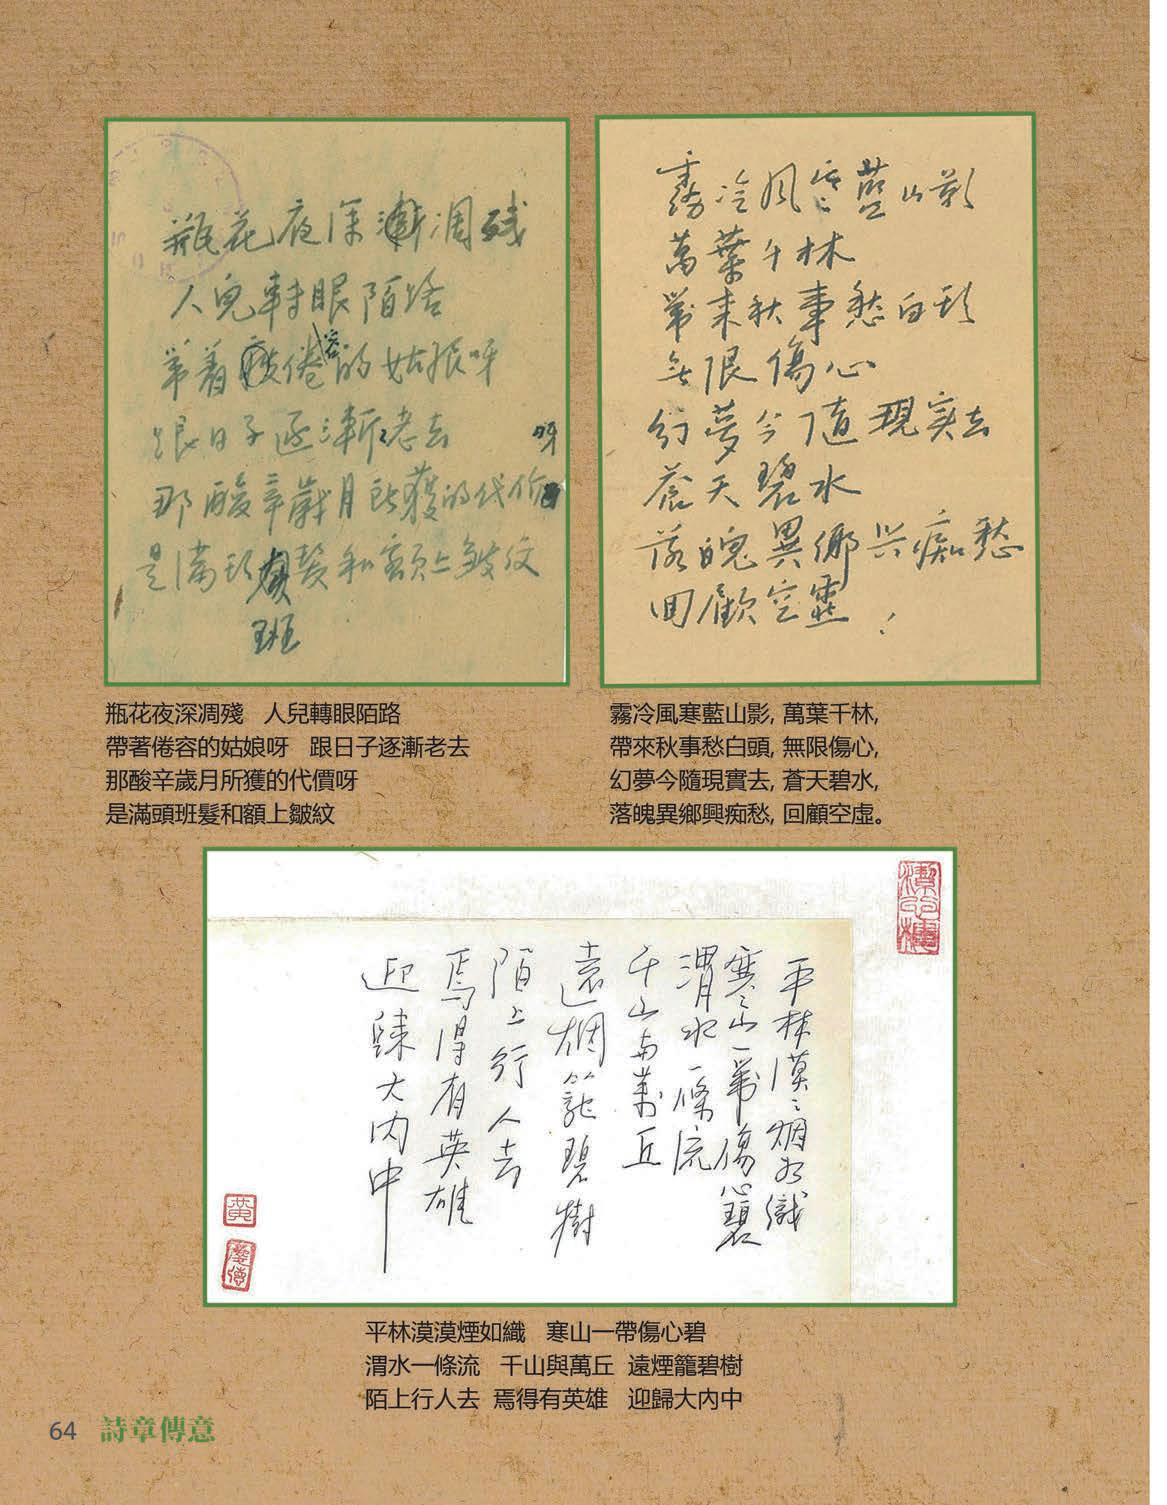 瓶花夜深漸凋殘
人兒轉眼陌路
帶着倦容的姑娘呀
跟日子逐漸老去
那酸辛歲月所獲的代价呀
是滿頭髮和額上皺紋
班
霧冷風寒藍山影
萬葉千林
帶来秋事愁白頭
無限傷心
幻夢今隨現实去
蒼天碧水
落魄異鄉兴痴愁
回顧空虛！
瓶花夜深凋殘　人兒轉眼陌路
帶著倦容的姑娘呀　跟日子逐漸老去
那酸辛歲月所獲的代價呀
是滿頭班髮和額上皺紋
霧冷風寒藍山影, 萬葉千林,
帶來秋事愁白頭, 無限傷心,
幻夢今隨現實去, 蒼天碧水,
落魄異鄉興痴愁, 回顧空虛。
平林漠漠烟如織
寒山一帶傷心碧
渭水一條流
千山与萬丘
遠烟籠碧樹
陌上行人去
焉得有英雄
迎歸大内中
黄
慶德
平林漠漠煙如織　寒山一帶傷心碧
渭水一條流　千山與萬丘　遠煙籠碧樹
陌上行人去　焉得有英雄　迎歸大內中
64 詩章傳意